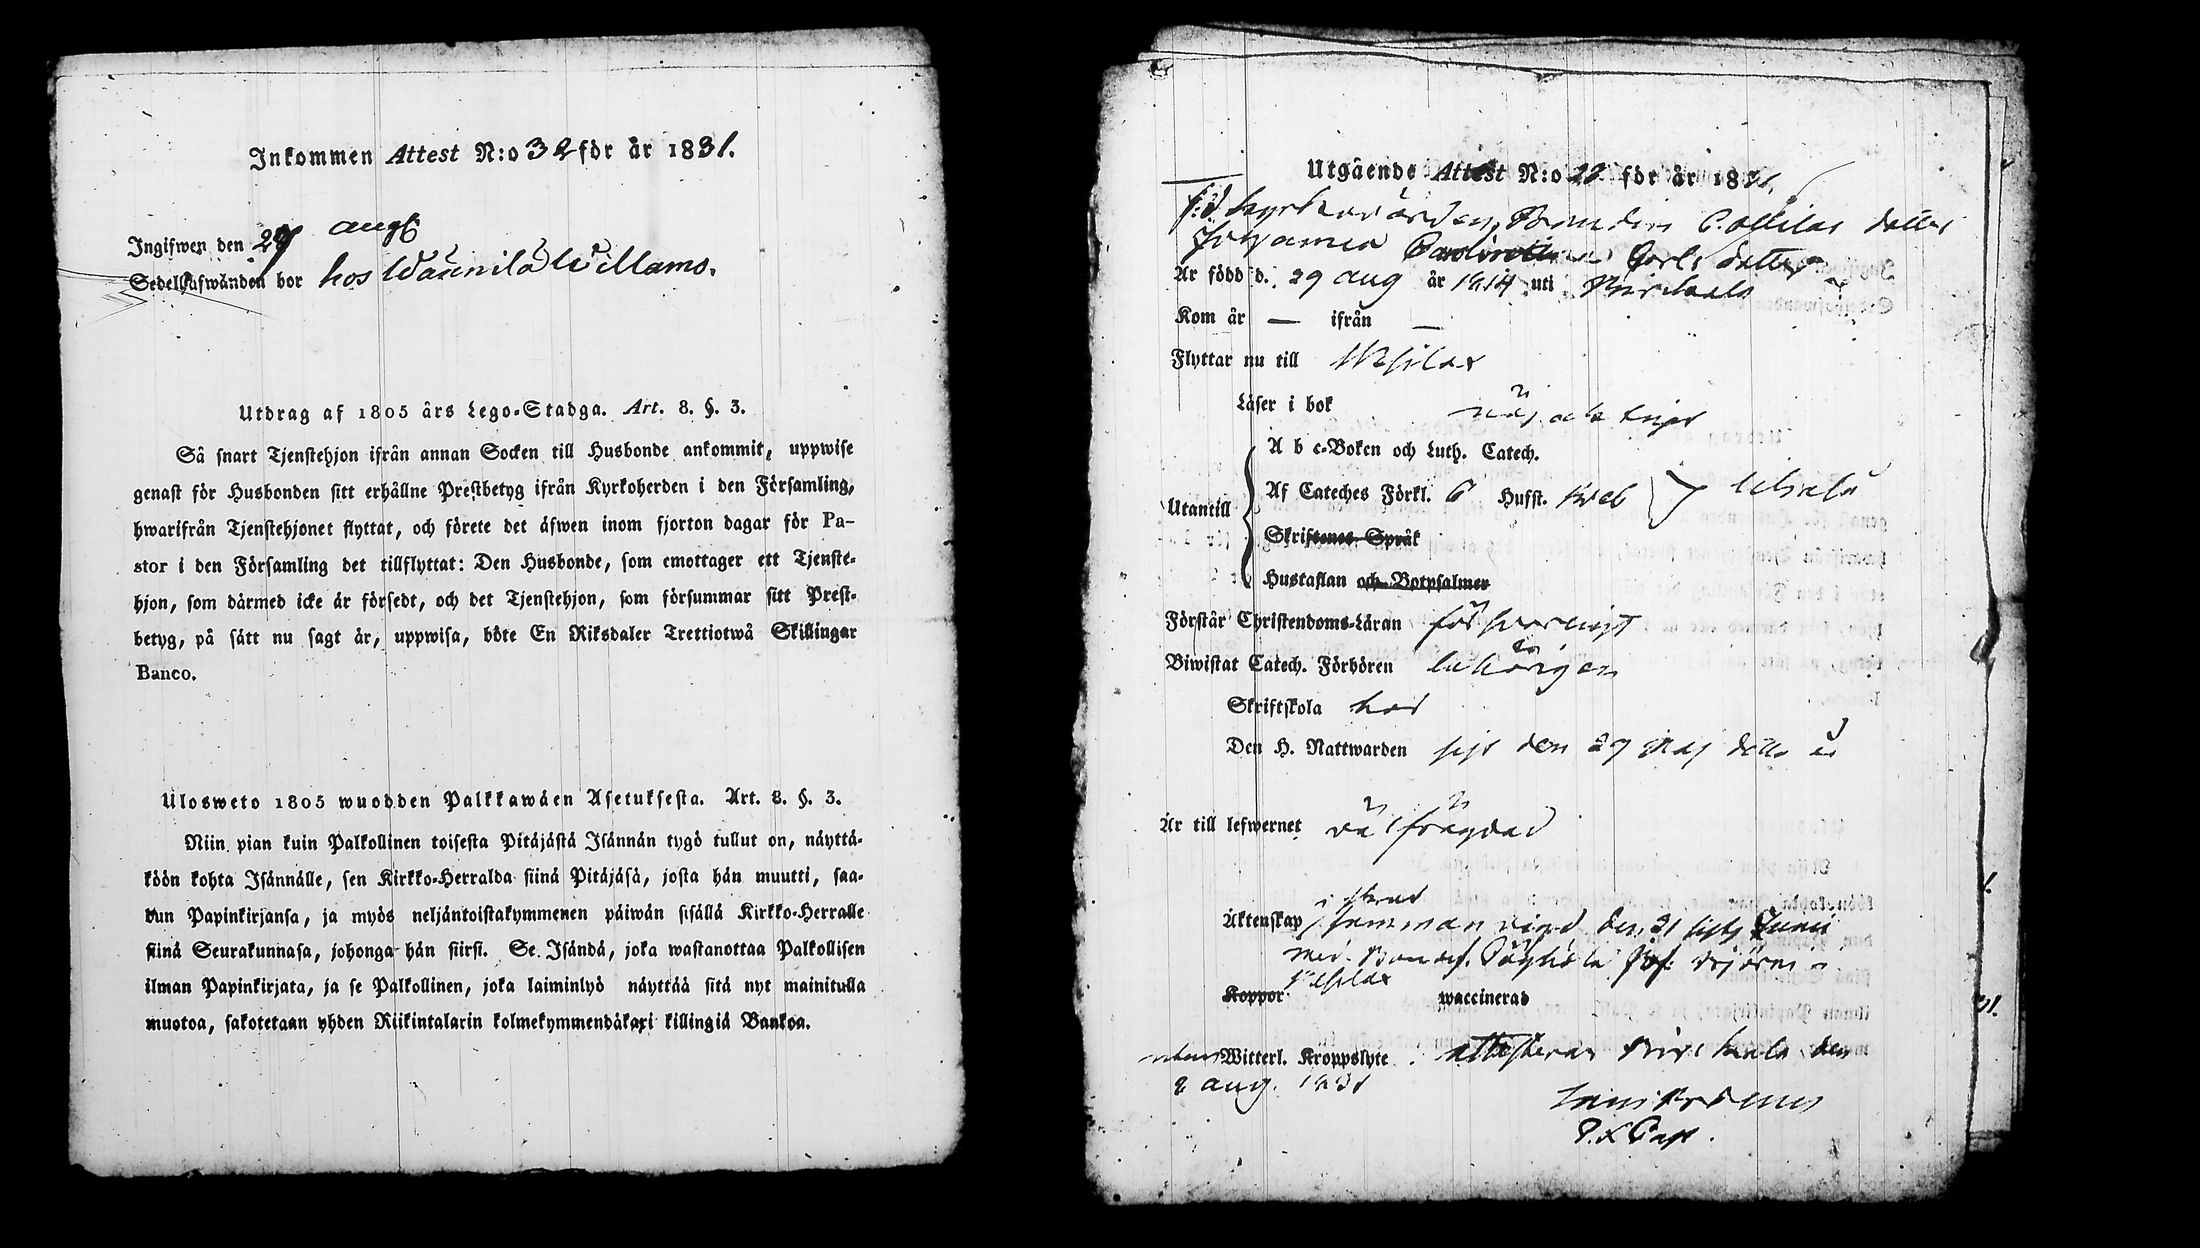 Inkommen Attest N:o 32 för år 1831.
Ingifwen den 27 aug
Sedelhafwanden bor hos Waunila Willamo.
Utdrag af 1805 års Lego-Stadga. Art. 8. §. 3.
Så snart Tjenstehjon ifrån annan Socken till Husbonde ankommit, uppwise
genast för Husbonden sitt erhållne Prestbetyg ifrån Kyrkoherden i den Församling,
hwarifrån Tjenstehjonet flyttat, och förete det äfwen inom fjorton dagar för Pa-
stor i den Församling det tillflyttat: Den Husbonde, som emottager ett Tjenste-
hjon, som därmed icke är försedt, och det Tjenstehjon, som försummar sitt Prest-
betyg, på sätt nu sagt är, uppwisa, böte En Riksdaler Trettiotwå Skillingar
Banco.
Ulosweto 1805 wuodden Palkkawäen Asetuksesta. Art. 8. §. 3.
Niin pian kuin Palkollinen toisesta Pitäjästä Isännän tygö tullut on, näyttä-
köön kohta Isännälle, sen Kirkko-Herralda siinä Pitäjäsä, josta hän muutti, saa-
dun Papinkirjansa, ja myös neljäntoistakymmenen päiwän sisällä Kirkko-Herralle
siinä Seurakunnasa, johonga hän siirsi. Se Isändä, joka wastanottaa Palkollisen
ilman Papinkirjata, ja se Palkollinen, joka laiminlyö näyttää sitä nyt mainitulla
muotoa, sakotetaan yhden Riikintalarin kolmekymmendäkaxi killingiä Bankoa.
Utgående Attest N:o 22 för år 1831.
f.d. Kyrkovärden, Bonden dotter
Johanna Carlsdotter
Är född d. 29 aug år 1814 uti Pirkkala
Kom år — ifrån —
Flyttar nu till Wesilax
Läser i bok
A b c-Boken och Luth. Catech.
Utantill Af Cateches Förkl. 6 Hufst.
Skriftenes Språk
Hustaflan och Botpsalmer
Förstår Christendoms-Läran försvarligt
Biwistat Catech. Förhören behörigen
Skriftskola har
Den H. Nattwarden sist den 29 Maj detta år
Är till lefwernet väl frägdad
Äktenskap Juni
med
Wesilax
Koppor waccinerad
utan Witterl. Kroppslyte. attesterar Pirkkala den
2 aug. 1831